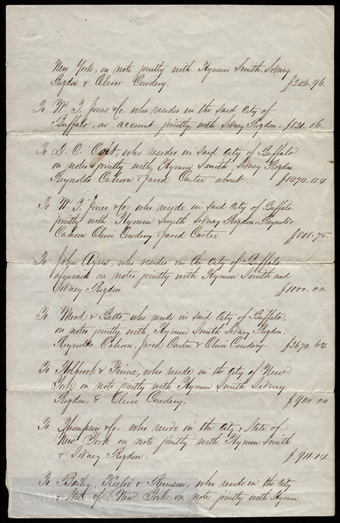 New York, on note jointly with Hyrum Smith, Sidney
Rigdon & Oliver Cowdery. $246.96.
To W. T. Jones &c. who resides in the said City of
Buffalo, on account jointly with Sidney Rigdon, $
To D. C. who resides in said City of Buffalo
on notes jointly with, Hyrum Smith Sidney Rigdon
Reynolds Cahoon & Jared Carter about $1074.44
To W. T. Jones &c. who reside in said City of Buffalo
jointly with Hyrum Smith Sidney Rigdon, Reynolds
Cahoon Oliver Cowdery & Jared Carter .75
To John Ayres who resides in the city of Buffalo
on notes jointly with Hyrum Smith and
Sidney Rigdon $1000.00.
To Mead & Betts who reside in said City of Buffalo
on note jointly with, Hyrum Smith, Sidney Rigdon,
Reynolds Cahoon, Jared Carter & Oliver Cowdery. $3670.64
To Holbrook & Ferme, who reside in the city of New
York, on note jointly with Hyrum Smith Sidney
Rigdon, & Oliver Cowdery. $900.00
To Thompson &c. who reside in the City, & State of
New York on note jointly with Hyrum Smith
& Sidney Rigdon.
To Bailey, Keeler & Remsen, who reside in the city
& State of New York on note jointly with Hyrum